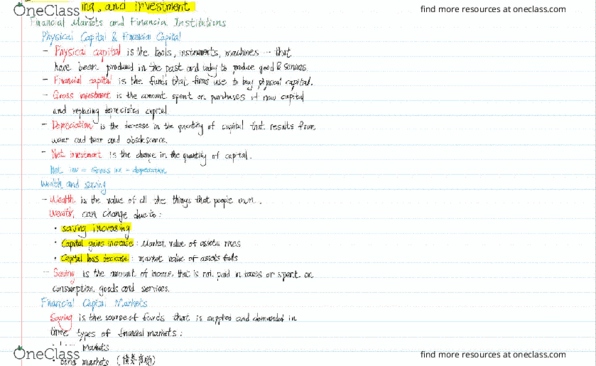 OneClass
find more resources at oneclass.com
ing, and Investment
Financial Markets and Financial Institutions
Physical Capital & Financial Capital
- Physical capital is the tools, instruments, machines ... that
have been produced in the past and used to produce good & services
- Financial capital is the funds that firms use to buy physical capital.
- Gross investment is the amount spent on purchases of new capital
and replacing depreciated capital
- Depreciation is the decrease in the quantity of capital that results from
wear and tear and obsolescence.
- Net investment is the change in the quantity of capital.
Net inv = Gross inv - depreciation
Wealth and saving
- Wealth is the value of all the things that people own.
Wealth can change due to:
• saving increasing
• Capital gains increase: Market value of assets rises
• Capital loss decrease: market value of assets falls
- Saving is the amount of income that is not paid in taxes or spent on
consumption goods and services.
Financial Capital Markets
Saving is the source of funds that is supplied and demanded in
three types of financial markets:
• Markets
• Bond markets
OneClass
find more resources at oneclass.com